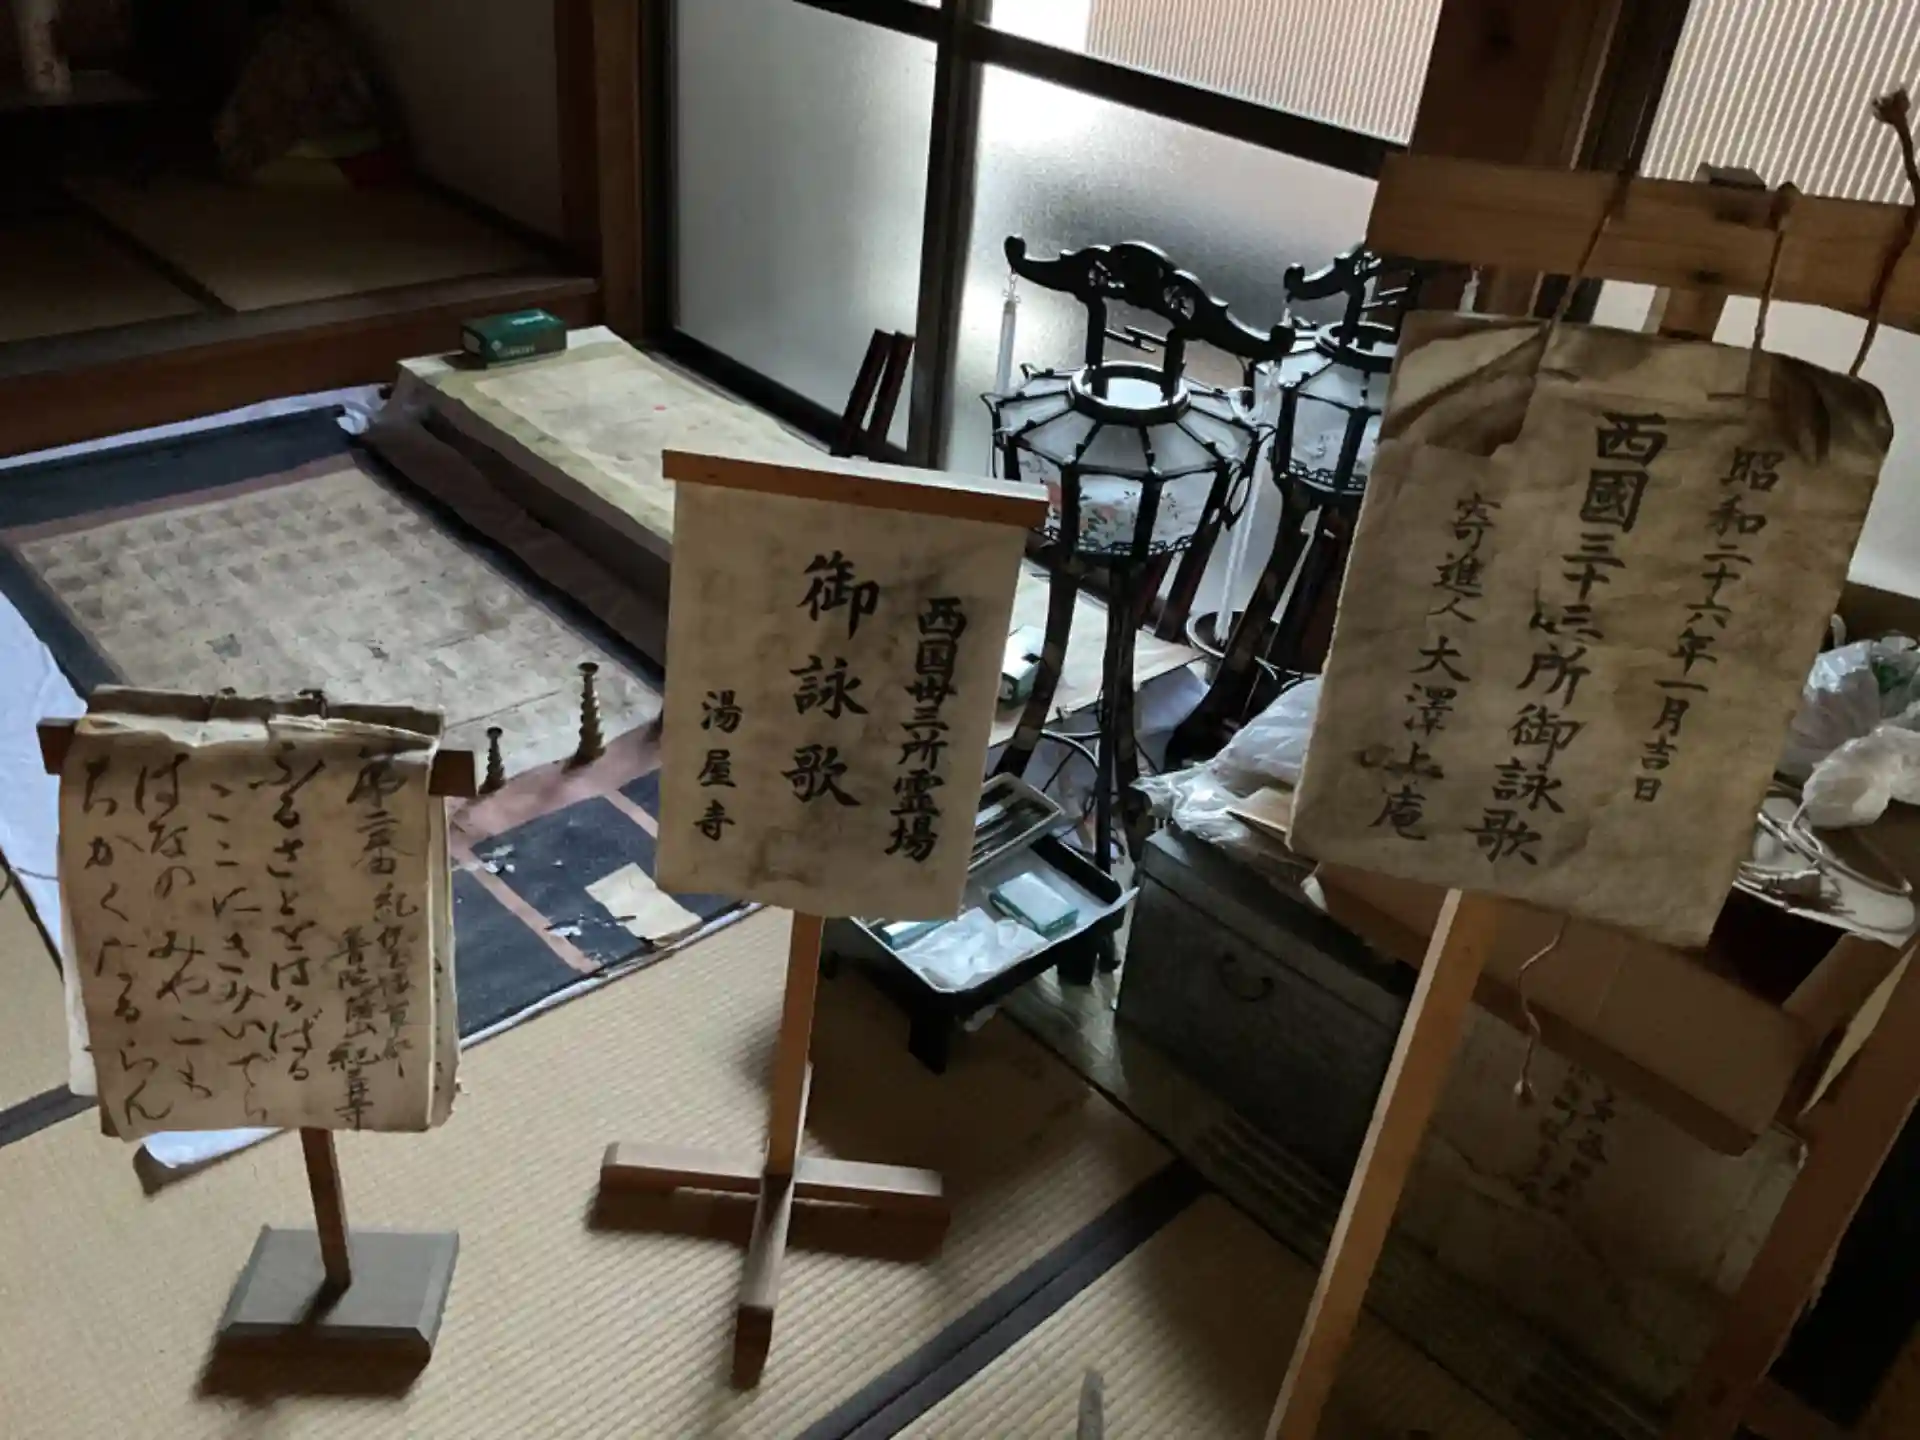 昭和二十六年一月吉日
西國三十三所御詠歌
寄進人 大澤上庵
西国丗三所霊場
御詠歌
湯屋寺
第二番 紀伊
普陀落山紀三井寺
ふるさとをはるばる
ここにきみいでら
はなのみやこも
ちかくなるらん